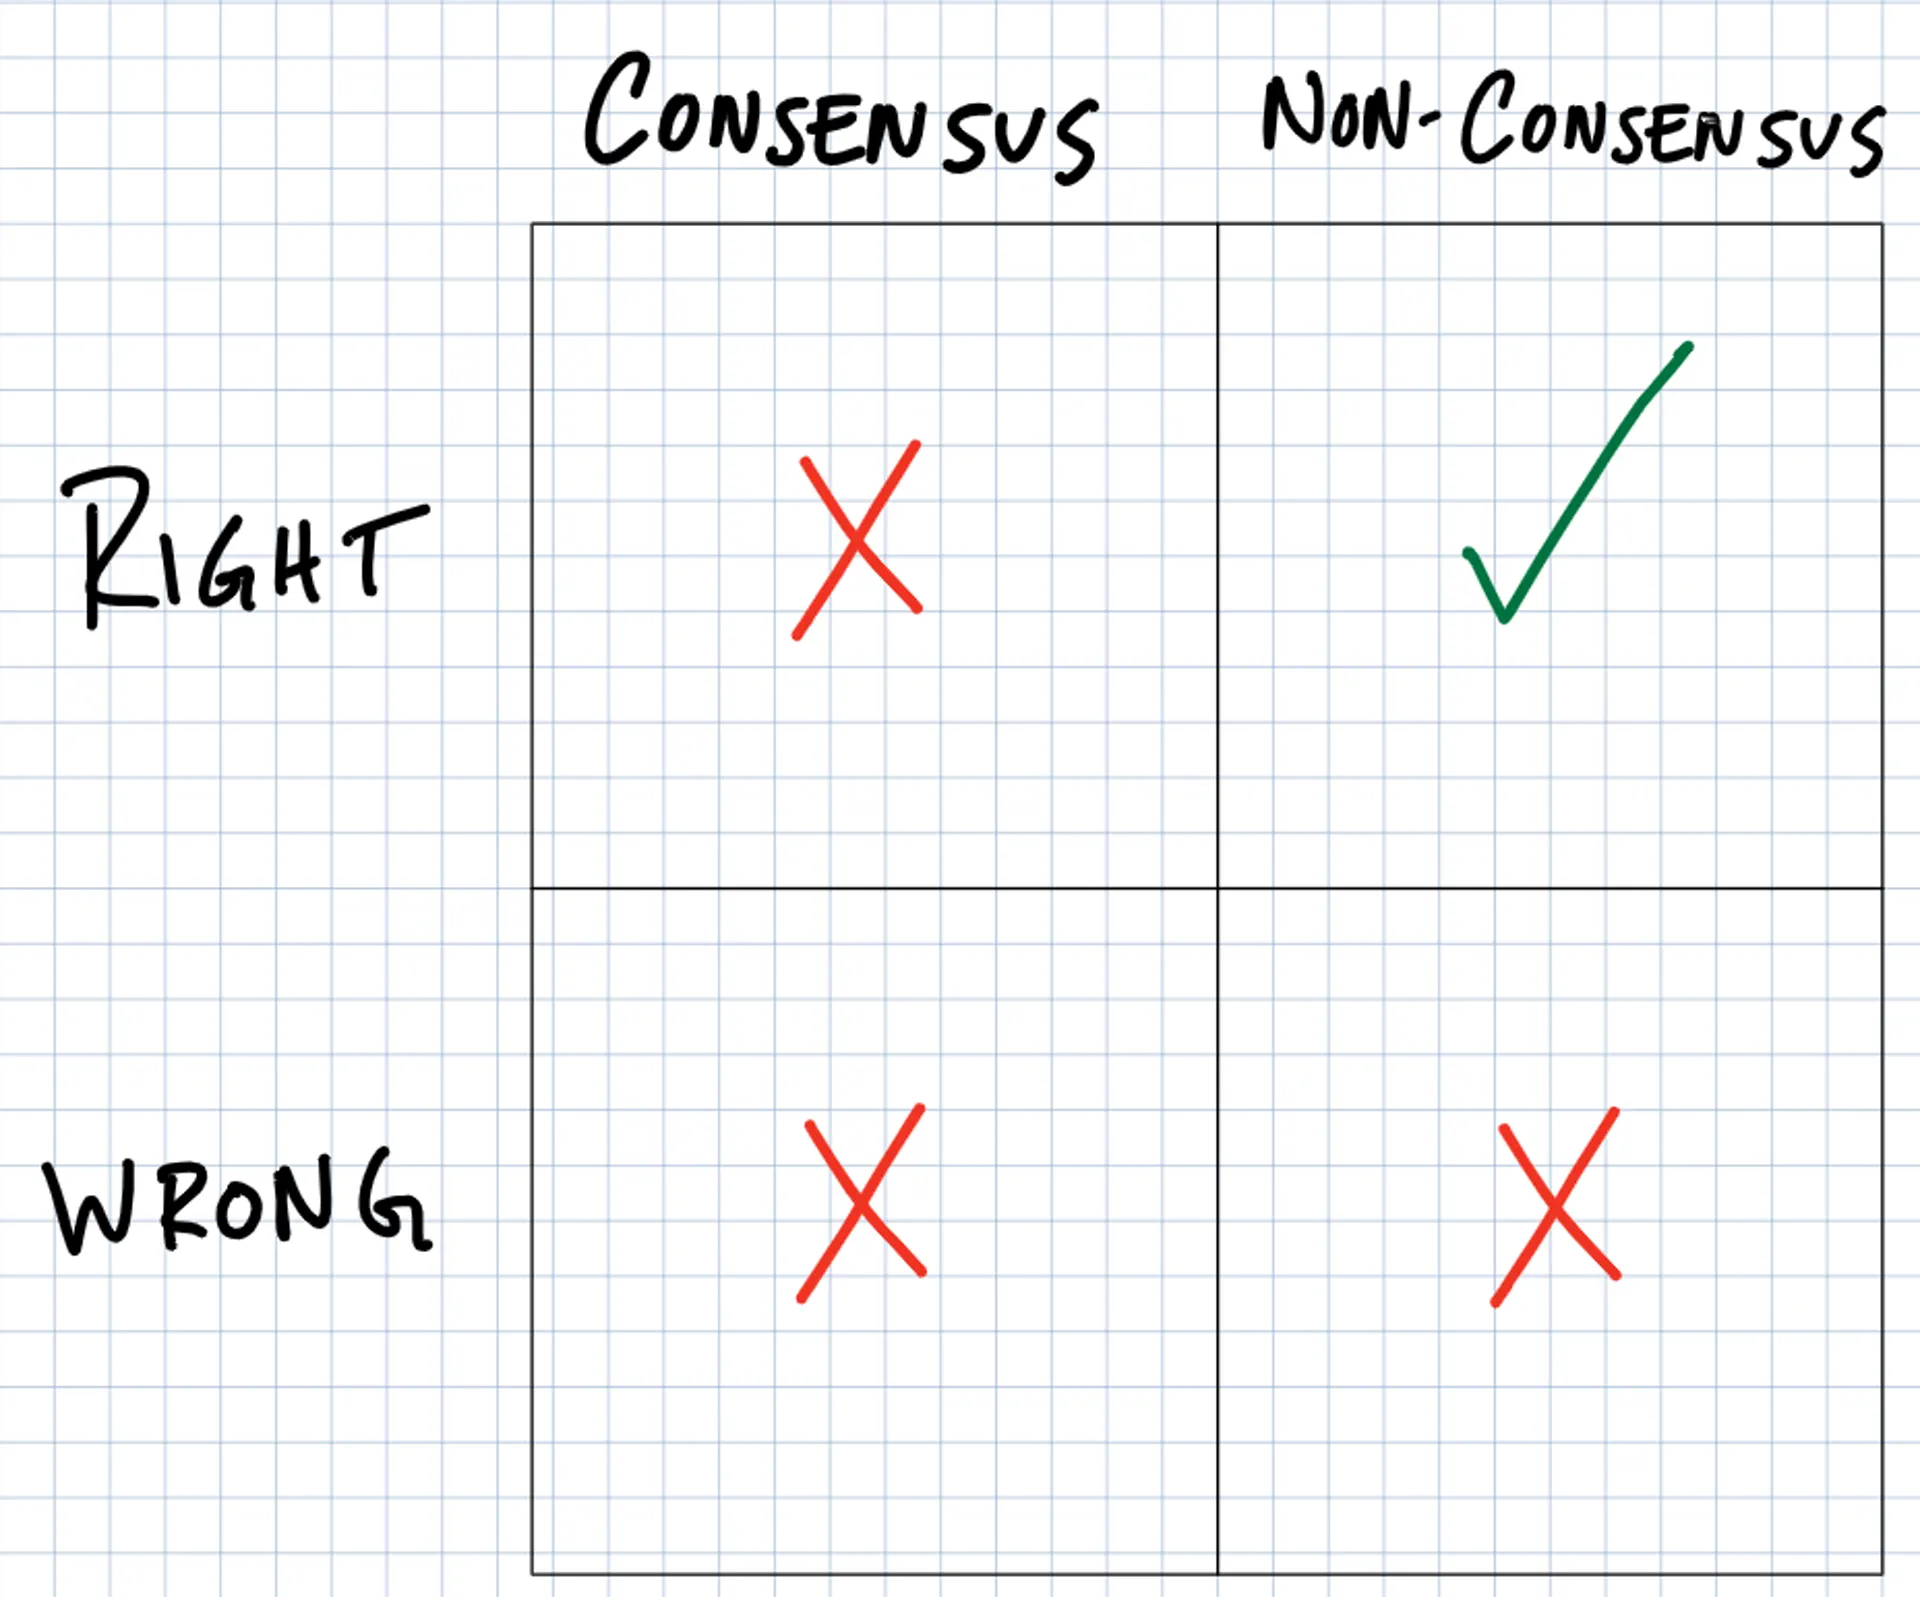 CONSENSUS NON-CONSENSUS
RIGHT
WRONG